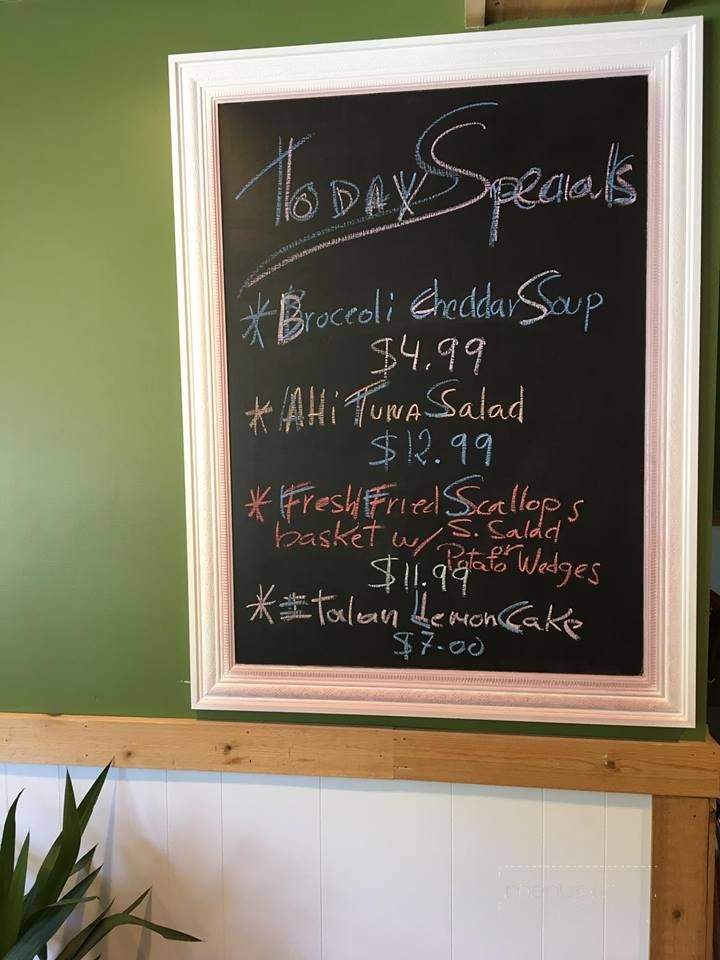 Today Specials
* Broccoli Cheddar Soup
$4.99
* AHi Tuna Salad
$12.99
* Fresh Fried Scallops
basket w/ S. Salad
or
Potato Wedges
$11.99
* Italan Lemon Cake
$7.00